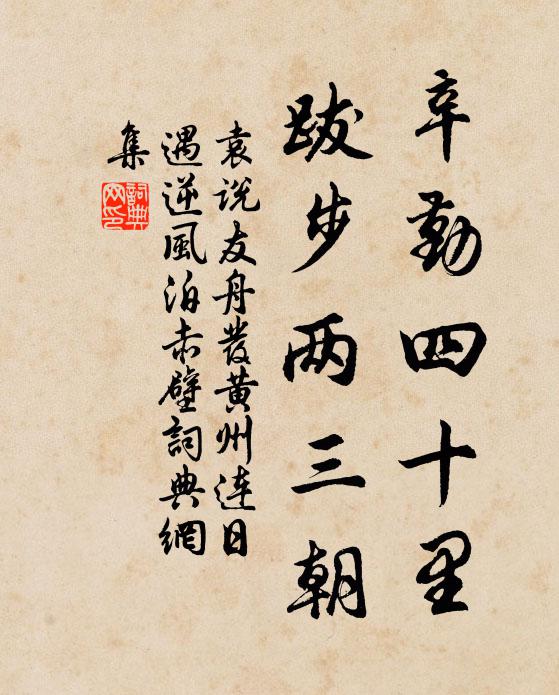 辛勤四十里
跋步两三朝
袁说友舟發黄州連日
遇逆風泊赤壁詞典網
集
詞典
网印